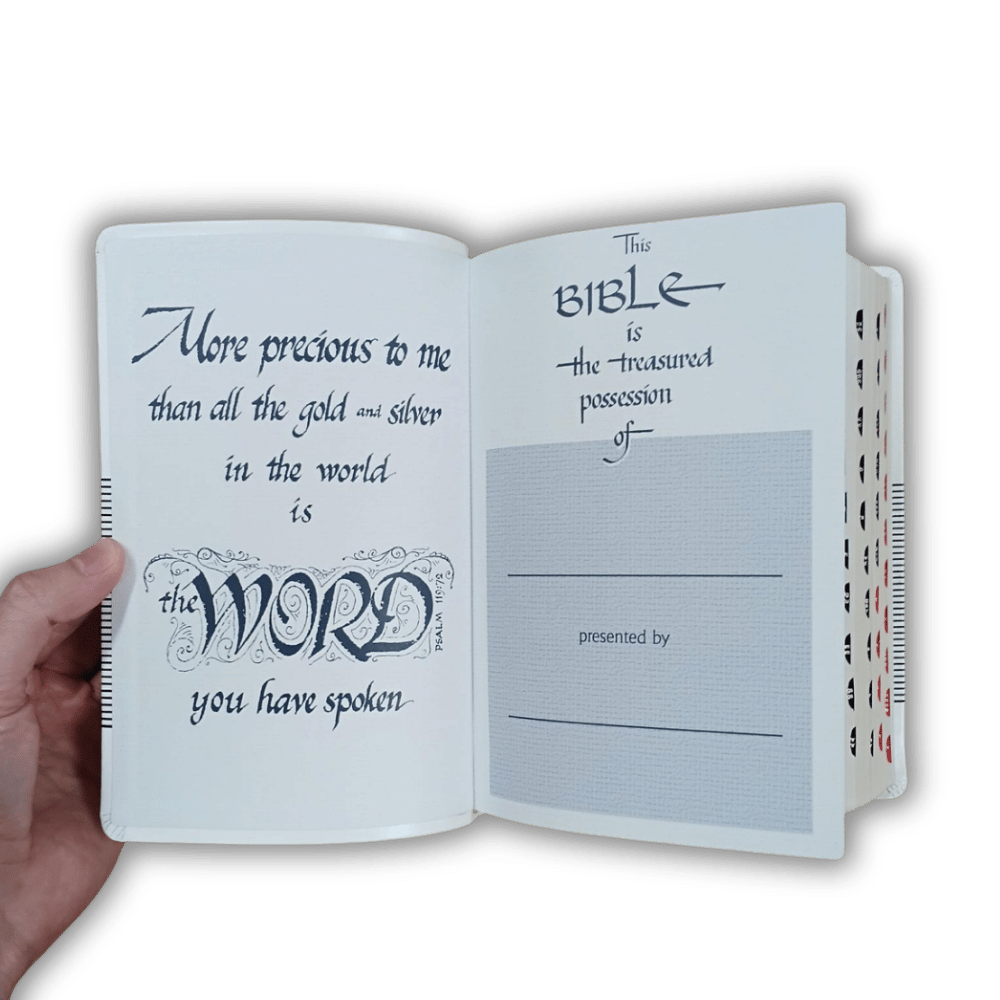 More precious to me
than all the gold and silver
in the world
is
the WORD
PSALM 119:72
you have spoken
This
BIBLE
is
the treasured
possession
of
presented by